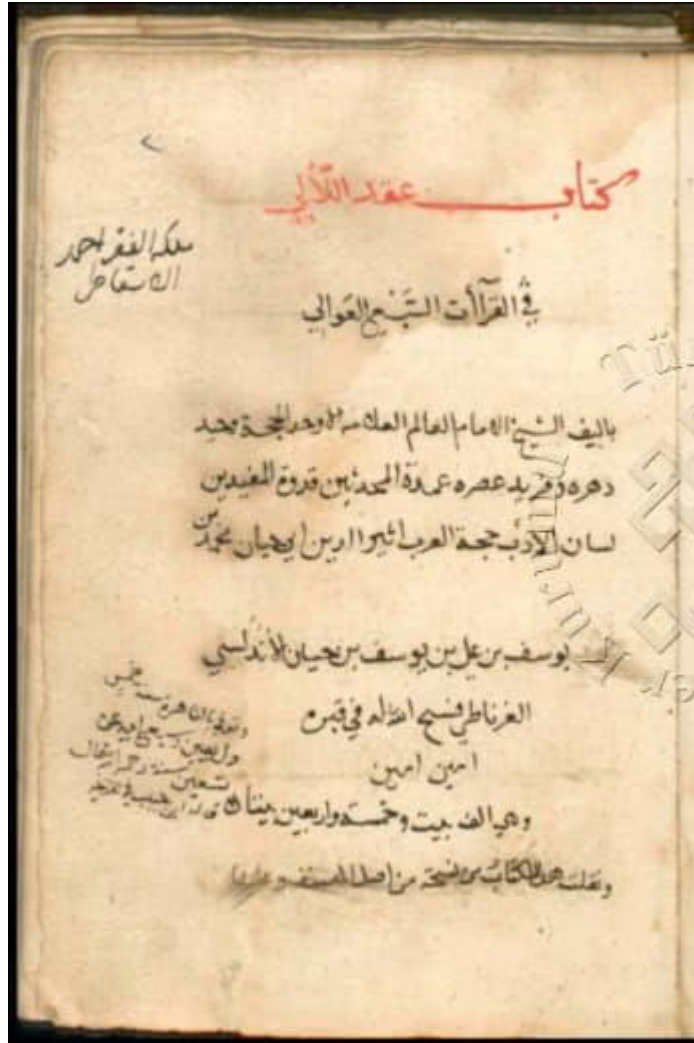 كتاب عقد اللآلي
ملكه الفقير احمد
في القراآت السبع العوالي
تاليف الشيخ الامام العالم العلامه الاوحد الحجة وحيد
دهره وفريد عصره عمدة المحدثين قدوة المفيدين
لسان الأدب حجة العرب اثير الدين ابي حيان محمد بن
يوسف بن علي بن يوسف بن حيان الأندلسي
الغرناطي فسح الله له في قبره
امين امين
وهي الف بيت وخمسة واربعين بيتا
ونقلت هذا الكتاب من نسخة من اصل المصنف
وتوفي بالقاهرة سنة خمس